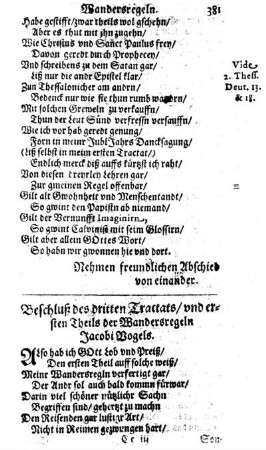 Wandersregeln. 381
Habe gestifft/ zwar theils wol gschehn/
Aber es thut mit jhn zugehn/
Wie Christus vnd Sanct Paulus frey/
Davon geredt durch Prophecey/
Vnd schreibens zu dem Satan gar/
Liß nur die ander Epistel klar/
Zun Thessalonicher am andrn/
Bedenck nur wie sie thun rumb wandrn/
Mit solchen Gremeln zu verkauffn/
Thun der Leut Sünd verfressn versauffn/
Wie ich vor hab geredt genung/
Forn in meinr Jubl Jahrs Dancksagung/
(Liß selbst in meim ersten Tractat/
Endlich merck diß auffs kürtzt ich raht/
Von diesen trewrlen Lehren gar/
Zur gmeinen Regel offenbar/
Gilt alt Gwohnheit vnd Menschentandt/
So gwint den Papistn ab niemand/
Gilt der Vernunfft Imaginirn/
So gwint Calviniß mit seim Glossirn/
Gilt aber allein GOttes Wort/
So habn wir gwonnen hie vnd dort.
Vide
2. Thess.
Deut. 13.
& 18.
Nehmen freundlichen Abschied
von einander.
Beschluß des dritten Tractats/ vnd er-
sten Theils der Wandersregeln
Jacobi Vogels.
Also hab ich Gott Lob vnd Preiß/
Den ersten Theil auff solche weiß/
Meine Wandersregln verfertigt gar/
Der Andr sol auch bald komm fürwar/
Darin viel schöner nützlichr Sachn
Begriffen sind/ gehertzt zu machn
Den Reisenden gar lustigr Art/
Nicht in Reimen gezwungen hart/
Ce iij Son-